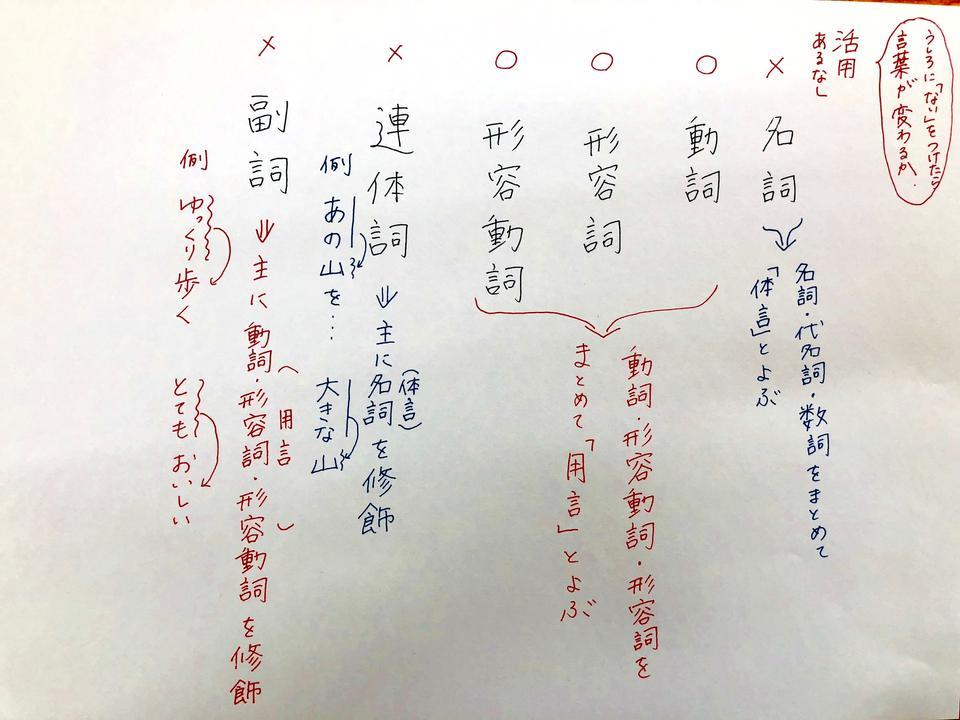 うしろに「ない」をつけたら
言葉が変わるか.
活用
あるなし
× 名詞
名詞・代名詞・数詞をまとめて
「体言」とよぶ
○ 動詞
○ 形容詞
○ 形容動詞
動詞・形容動詞・形容詞を
まとめて「用言」とよぶ
× 連体詞 ⇒ 主に名詞を修飾
(体言)
例 あの山を… 大きな山
× 副詞 ⇒ 主に動詞・形容詞・形容動詞を修飾
(用言)
例 ゆっくり歩く とてもおいしい